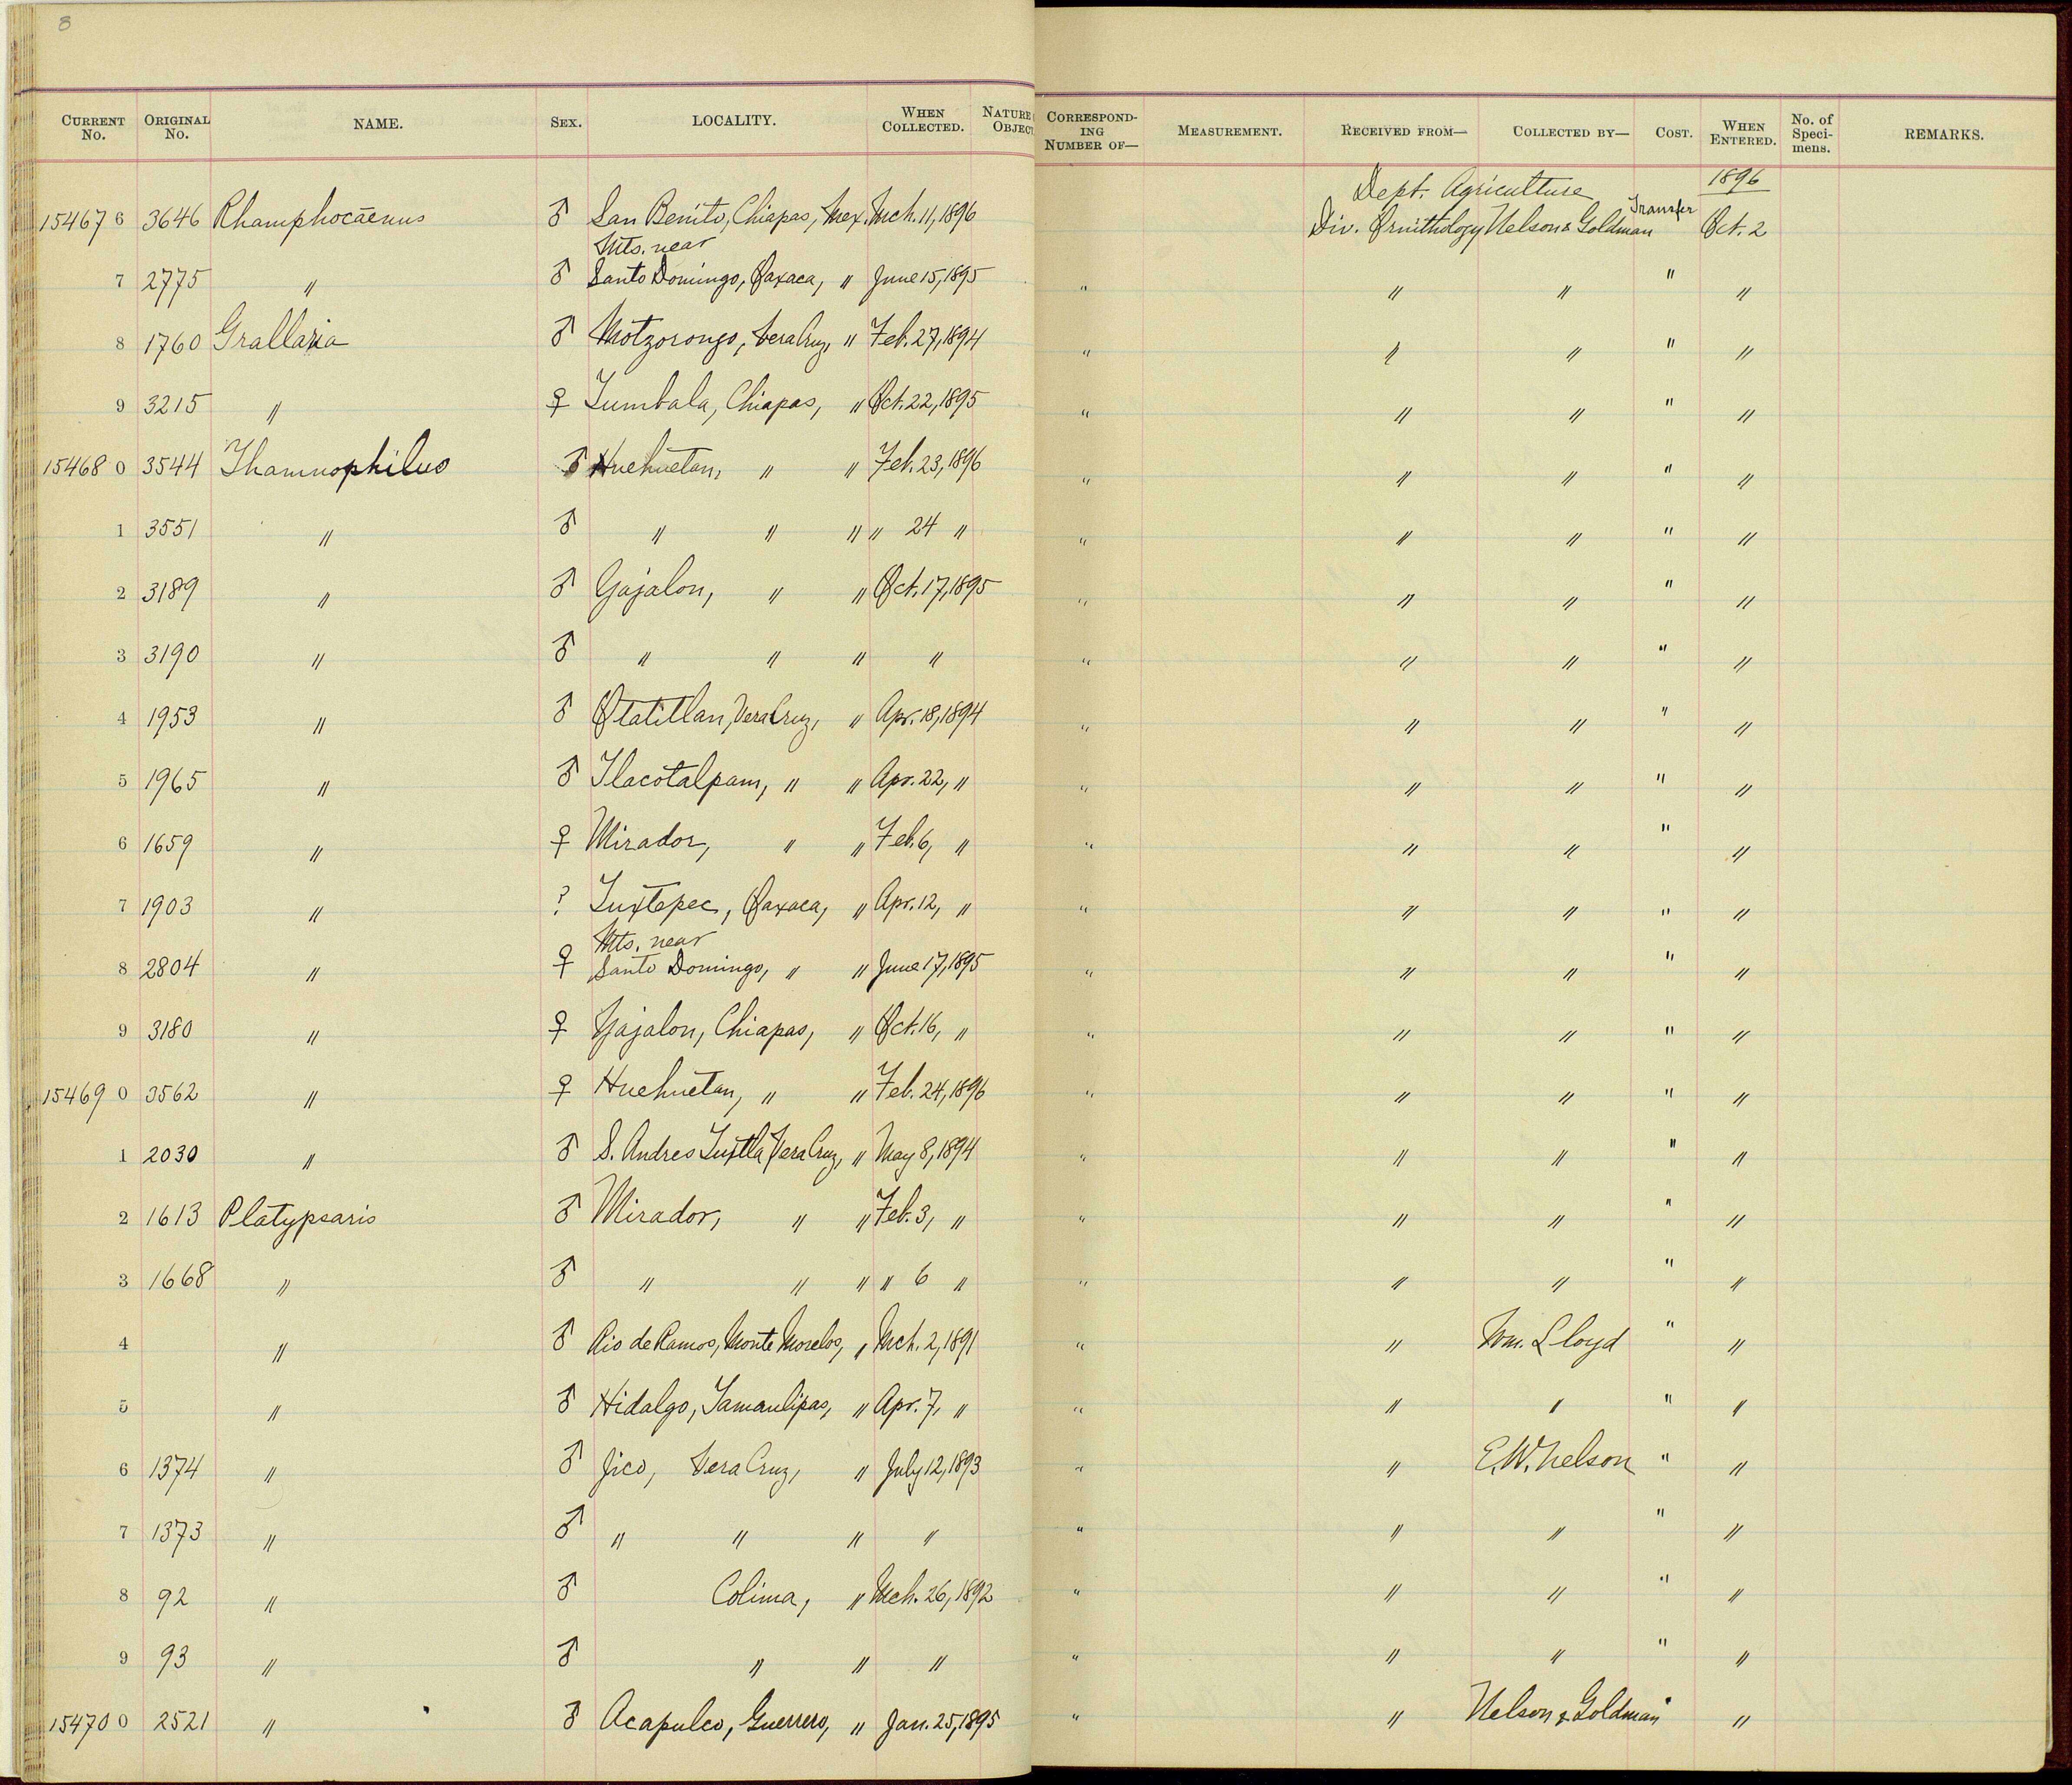 8
CURRENT No. ORIGINAL No. NAME. SEX. LOCALITY. WHEN COLLECTED. NATURE OBJECT CORRESPONDING NUMBER OF— MEASUREMENT. RECEIVED FROM— COLLECTED BY— COST. WHEN ENTERED. No. of Specimens. REMARKS.
Dept. Agriculture 1896
15467 6 3646 Rhamphocaenus ♂ San Benito, Chiapas, Mex. Mch. 11, 1896 Div. Ornithology Nelson & Goldman Transfer Oct. 2
Mts. near
7 2775 " ♂ Santo Domingo, Oaxaca, " June 15, 1895 " " " " "
8 1760 Grallaria ♂ Motzorongo, Vera Cruz, " Feb. 27, 1894 " " " " "
9 3215 " ♀ Tumbala, Chiapas, " Oct. 22, 1895 " " " " "
15468 0 3544 Thamnophilus ♂ Huehuetan, " " Feb. 23, 1896 " " " " "
1 3551 " ♂ " " " " 24 " " " " " "
2 3189 " ♂ Yajalon, " " Oct. 17, 1895 " " " " "
3 3190 " ♂ " " " " " " " " "
4 1953 " ♂ Otatitlan, Vera Cruz, " Apr. 18, 1894 " " " " "
5 1965 " ♂ Tlacotalpam, " " Apr. 22, " " " " " "
6 1659 " ♀ Mirador, " " Feb. 6, " " " " " "
7 1903 " ? Tuxtepec, Oaxaca, " Apr. 12, " " " " " "
Mts. near
8 2804 " ♀ Santo Domingo, " " June 17, 1895 " " " " "
9 3180 " ♀ Yajalon, Chiapas, " Oct. 16, " " " " " "
15469 0 3562 " ♀ Huehuetan, " " Feb. 24, 1896 " " " " "
1 2030 " ♂ S. Andres Tuxtla, Vera Cruz, " May 8, 1894 " " " " "
2 1613 Platypsaris ♂ Mirador, " " Feb. 3, " " " " " "
3 1668 " ♂ " " " " 6 " " " " " "
4 " ♂ Rio de Ramos, Monte Morelos, " Mch. 2, 1891 " " Wm. Lloyd " "
5 " ♂ Hidalgo, Tamaulipas, " Apr. 7, " " " " " "
6 1374 " ♂ Jico, Vera Cruz, " July 12, 1893 " " E.W. Nelson " "
7 1373 " ♂ " " " " " " " " "
8 92 " ♂ Colima, " Mch. 26, 1892 " " " " "
9 93 " ♂ " " " " " " " "
15470 0 2521 " ♂ Acapulco, Guerrero, " Jan. 25, 1895 " " Nelson & Goldman " "